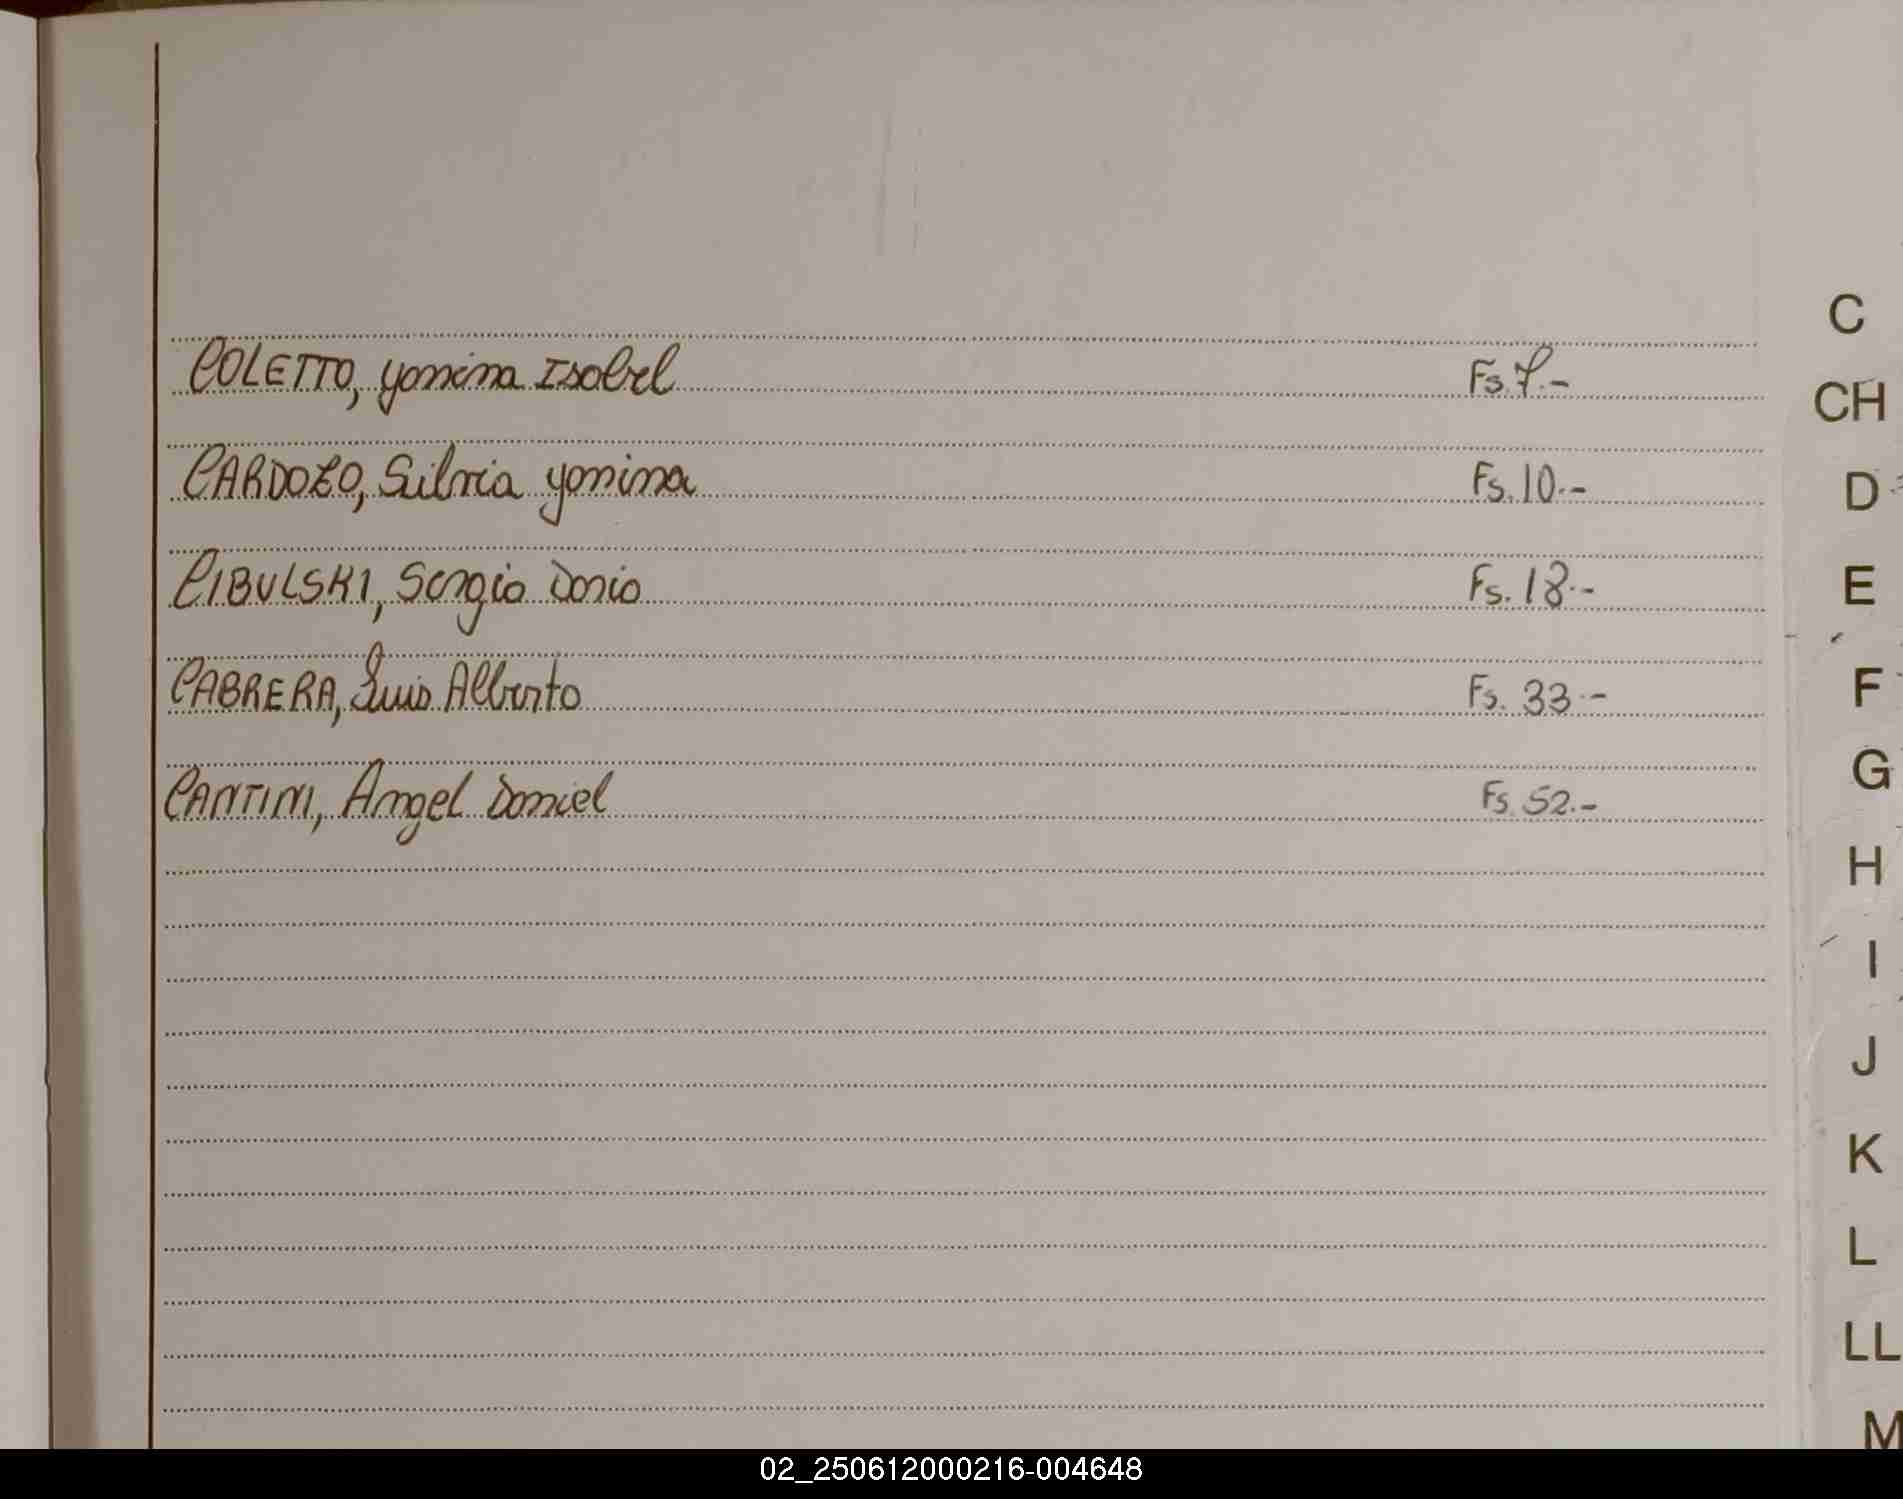 COLETTO, yanina Isabel Fs. 7.-
CARDOZO, Silvia yanina Fs. 10.-
CIBULSKI, Sergio Dario Fs. 18.-
CABRERA, Luis Alberto Fs. 33.-
CANTINI, Angel Daniel Fs. 52.-
C
CH
D
E
F
G
H
I
J
K
L
LL
M
02_250612000216-004648